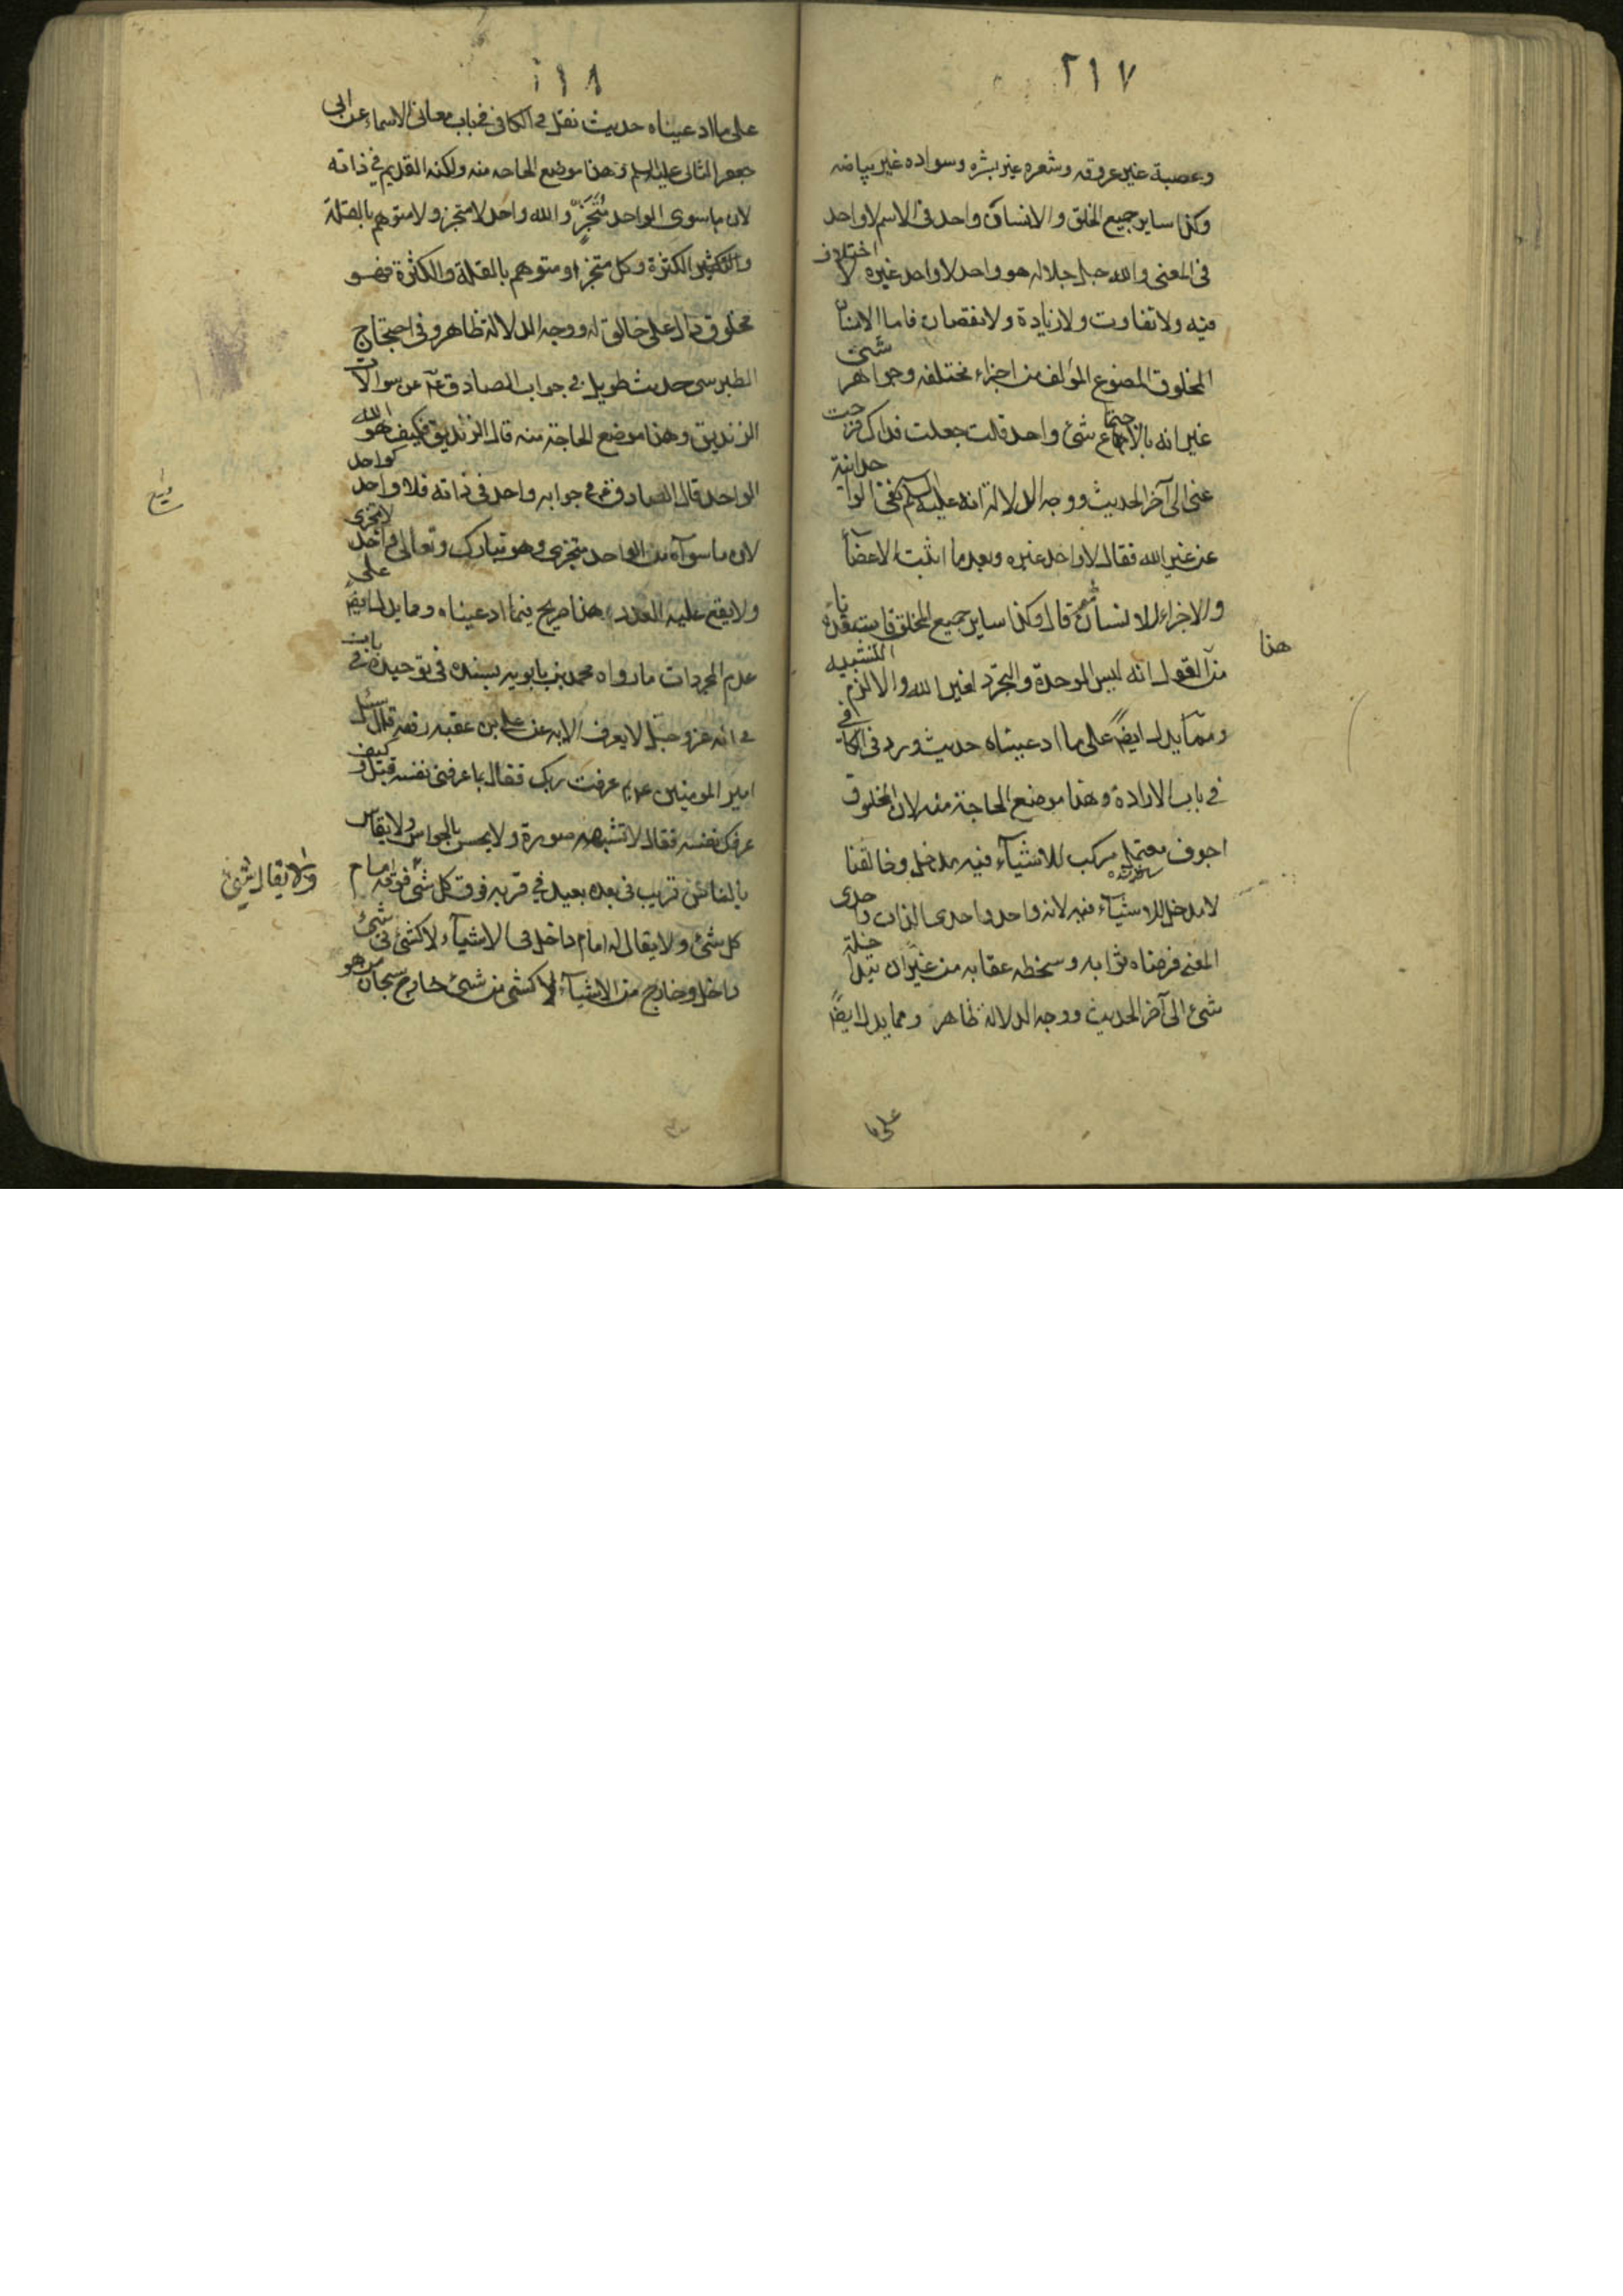 ٢١٧
وعصبة غير عروقه وشعره غير بشره وسواده غير بياضه
وكذا ساير جميع الخلق والانسان واحد فى الاسم لا واحد
فى المعنى والله جل جلاله هو واحد لا واحد غيره لا اختلاف
فيه ولا تفاوت ولا زيادة ولا نقصان فاما الانسان
المخلوق المصنوع المؤلف من اجزاء مختلفه وجواهر شتى
غير انه بالاجتماع شئ واحد قلت جعلت فداك فرجت
عنى الى آخر الحديث ووجه الدلالة انه عليه السلم نفى الوحدانية
عن غير الله فقال لا واحد غيره وبعد ما اثبت الاعضآء
والاجزاء للانسان قال وكذا ساير جميع الخلق
هذا
من القول انه ليس الوحدة والتجرد لغير الله والا لزم التشبيه
ومما يدل ايضاً على ما ادعيناه حديث ورد فى الكافى
فى باب الارادة وهذا موضع الحاجة منه لان المخلوق
اجوف معتمل مركب للاشيآء فيه مدخل وخالقنا
لا مدخل للاشيآء فيه لانه واحد واحدى الذات واحدى
المعنى فرضاه ثوابه وسخطه عقابه من غير ان يتداخله
شئ الى آخر الحديث ووجه الدلالة ظاهر ومما يدل ايضاً
على ما
٢١٨
على ما ادعيناه حديث نقل فى الكافى فى باب معانى الاسماء عن ابى
جعفر الثانى عليه السلم وهذا موضع الحاجه منه ولكنه القديم فى ذاته
لان ما سوى الواحد متجزّ والله واحد لا متجز ولا متوهم بالقلة
والكثرة وكل متجز او متوهم بالقلة والكثرة فهو
مخلوق دال على خالق له ووجه الدلالة ظاهر وفى احتجاج
الطبرسى حديث طويل فى جواب الصادق ع عن سوالات
الزنديق وهذا موضع الحاجة منه قال الزنديق فكيف هو الله
الواحد قال الصادق ع فى جوابه واحد فى ذاته فلا واحد كواحد
لان ما سواه من الواحد متجزى وهو تبارك وتعالى واحد لا يتجزى
ولا يقع عليه العدد هذا صريح فيما ادعيناه ومما يدل ايضاً على
عدم المجردات ما رواه محمد بن بابويه بسنده فى توحيده فى باب
فى انه عز وجل لا يعرف الا به عن على بن عقبه رفعه قال سئل
امير المومنين ع بم عرفت ربك فقال بما عرفنى نفسه قيل وكيف
عرفك نفسه فقال لا تشبهه صورة ولا يحس بالحواس ولا يقاس
بالناس قريب فى بعده بعيد فى قربه فوق كل شئ فوقه امام
ولا يقال شئ
كل شئ ولا يقال له امام داخل فى الاشيآء لا كشئ فى شئ
داخل وخارج من الاشيآء لا كشئ من شئ خارج سبحان من هو